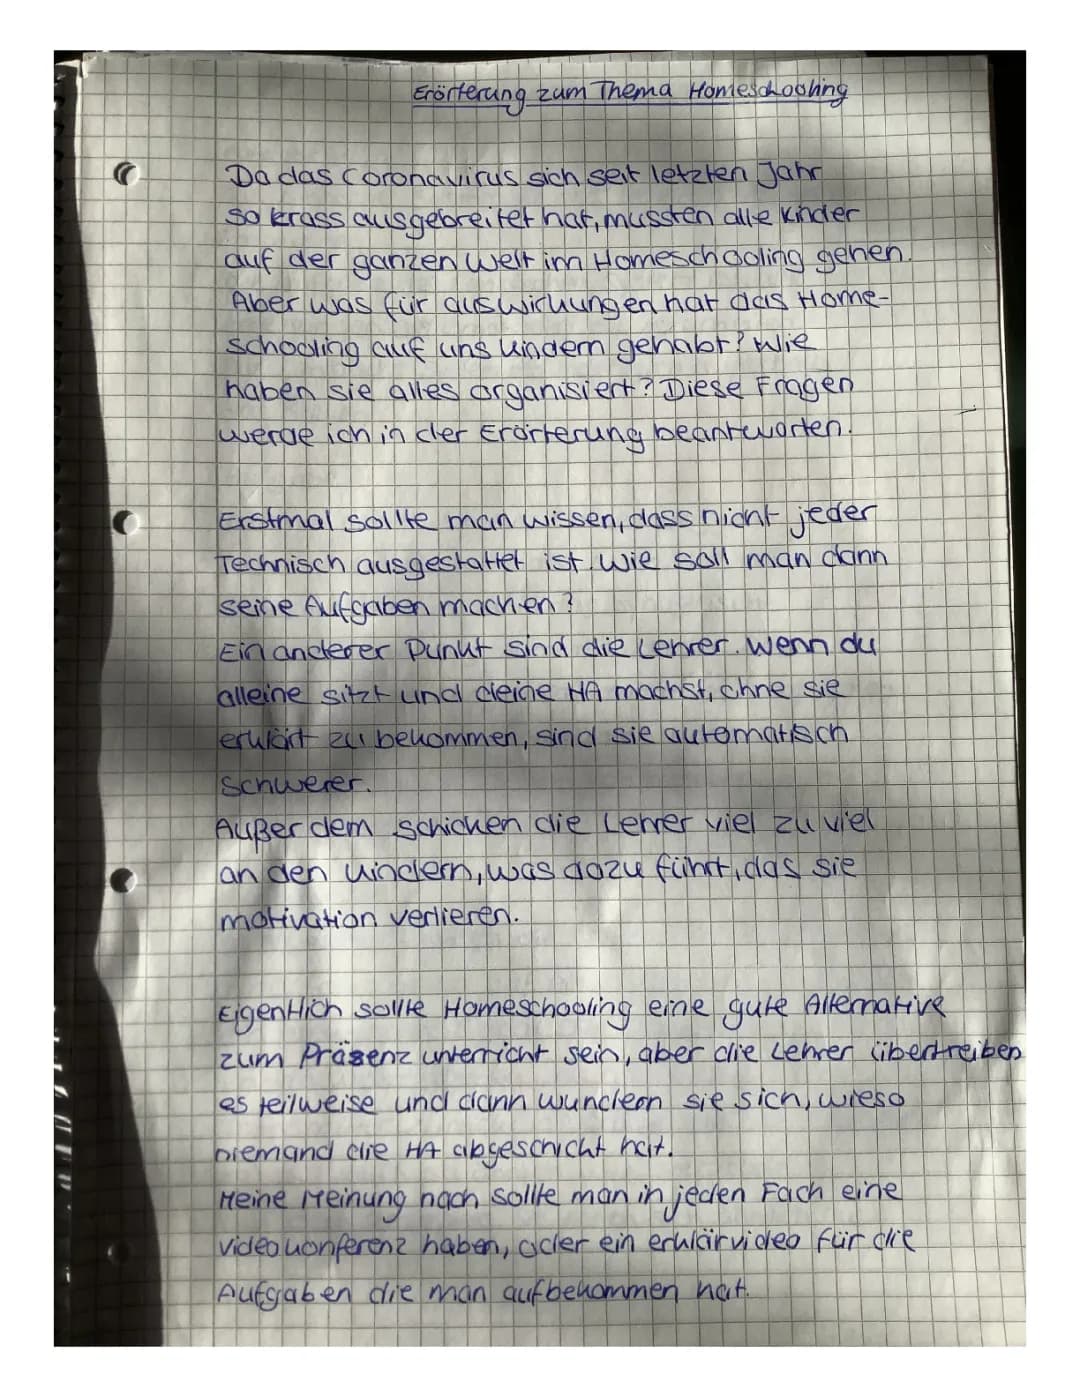 Erörterung zum Thema Homeschooling
Da das Coronavirus sich seit letzten Jahr
so krass ausgebreitet hat, mussten alle Kinder
auf der ganzen Welt im Homeschooling gehen.
Aber was für auswirkungen hat das Home-
schooling auf uns kindern gehabt? Wie
haben sie alles organisiert? Diese Fragen
werde ich in der Erörterung beantworten.
Erstmal sollte man wissen, dass nicht jeder
Technisch ausgestattet ist. Wie soll man dann
seine Aufgaben machen?
Ein anderer Punkt sind die Lehrer. Wenn du
alleine sitzt und deine HA machst, ohne sie
erklärt zu bekommen, sind sie automatisch
schwerer.
Außerdem schicken die Lehrer viel zu viel
an den kindern, was dazu führt, das sie
motivation verlieren.
Eigentlich sollte Homeschooling eine gute Alternative
zum Präsenzunterricht sein, aber die Lehrer übertreiben
es teilweise und dann wundern sie sich, wieso
niemand die HA abgeschickt hat.
Meine Meinung nach sollte man in jeden Fach eine
videokonferenz haben, oder ein erklärvideo für die
Aufgaben die man aufbekommen hat.